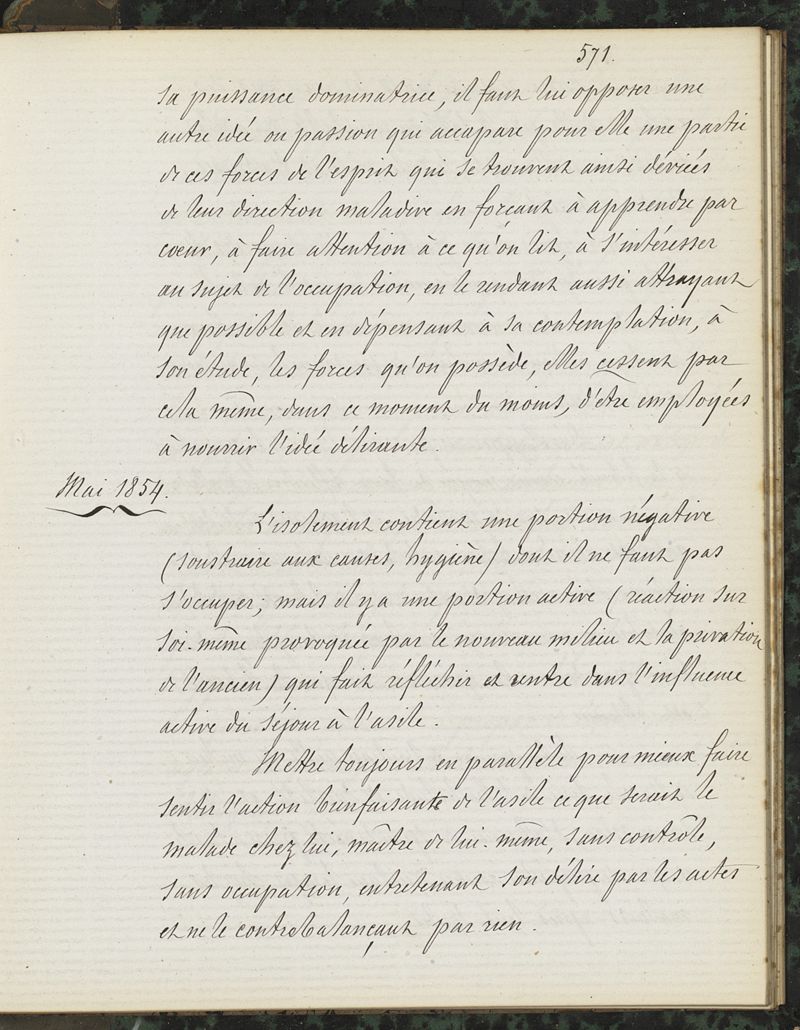 571.
sa puissance dominatrice, il faut lui opposer une
autre idée ou passion qui accapare pour elle une partie
de ces forces de l'esprit qui se trouvent ainsi déviées
de leur direction maladive en forçant à apprendre par
coeur, à faire attention à ce qu'on lit, à s'intéresser
au sujet de l'occupation, en le rendant aussi attrayant
que possible et en dépensant à sa contemplation, à
son étude, les forces qu'on possède, elles cessent par
cela même, dans ce moment du moins, d'être employées
à nourrir l'idée délirante.
Mai 1854.
L'isolement contient une portion négative
(soustraire aux causes, hygiène) dont il ne faut pas
s'occuper; mais il y a une portion active (réaction sur
soi-même provoquée par le nouveau milieu et la privation
de l'ancien) qui fait réfléchir et rentre dans l'influence
active du séjour à l'asile.
Mettre toujours en parallèle pour mieux faire
sentir l'action bienfaisante de l'asile ce que serait le
malade chez lui, maître de lui-même, sans contrôle,
sans occupation, entretenant son délire par les actes
et ne le contrebalançant par rien.